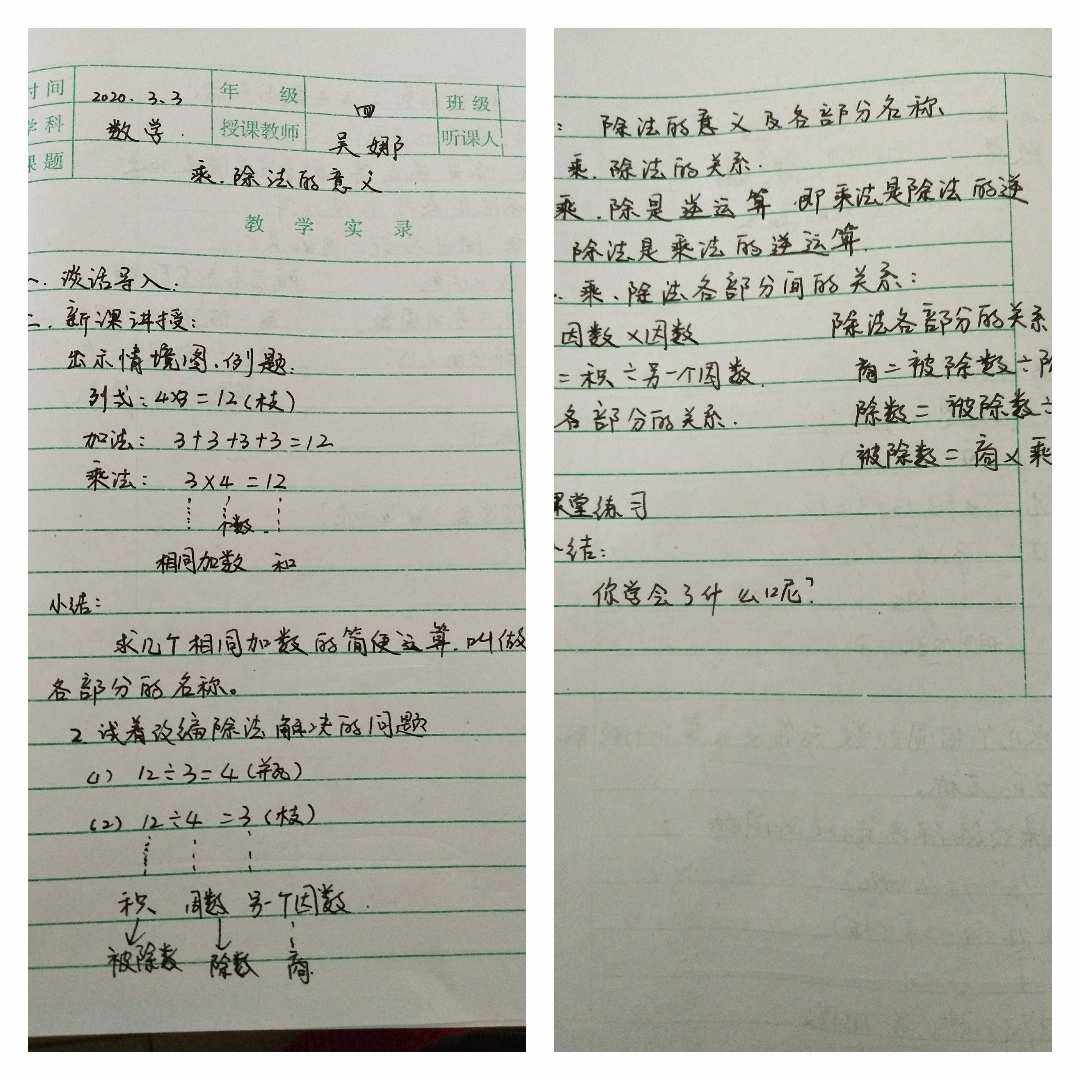 时间 2020.3.3 年 级 四 班 级
学科 数学. 授课教师 吴娜 听课人
课题 乘.除法的意义
教 学 实 录
一. 谈话导入.
二. 新课讲授:
出示情境图.例题.
列式: 4×3=12(枝)
加法: 3+3+3+3=12
乘法: 3×4=12
个数.
相同加数 和
小结:
求几个相同加数的简便运算.叫做
各部分的名称。
2 试着改编除法解决的问题
(1) 12÷3=4(瓶)
(2) 12÷4=3(枝)
积 因数 另一个因数.
被除数 除数 商.
: 除法的意义及各部分名称
乘.除法的关系.
乘.除是逆运算 即乘法是除法的逆
除法是乘法的逆运算
. 乘、除法各部分间的关系:
因数×因数 除法各部分的关系
=积÷另一个因数. 商=被除数÷除
各部分的关系. 除数=被除数÷
被除数=商×乘
课堂练习
小结:
你学会了什么呢?